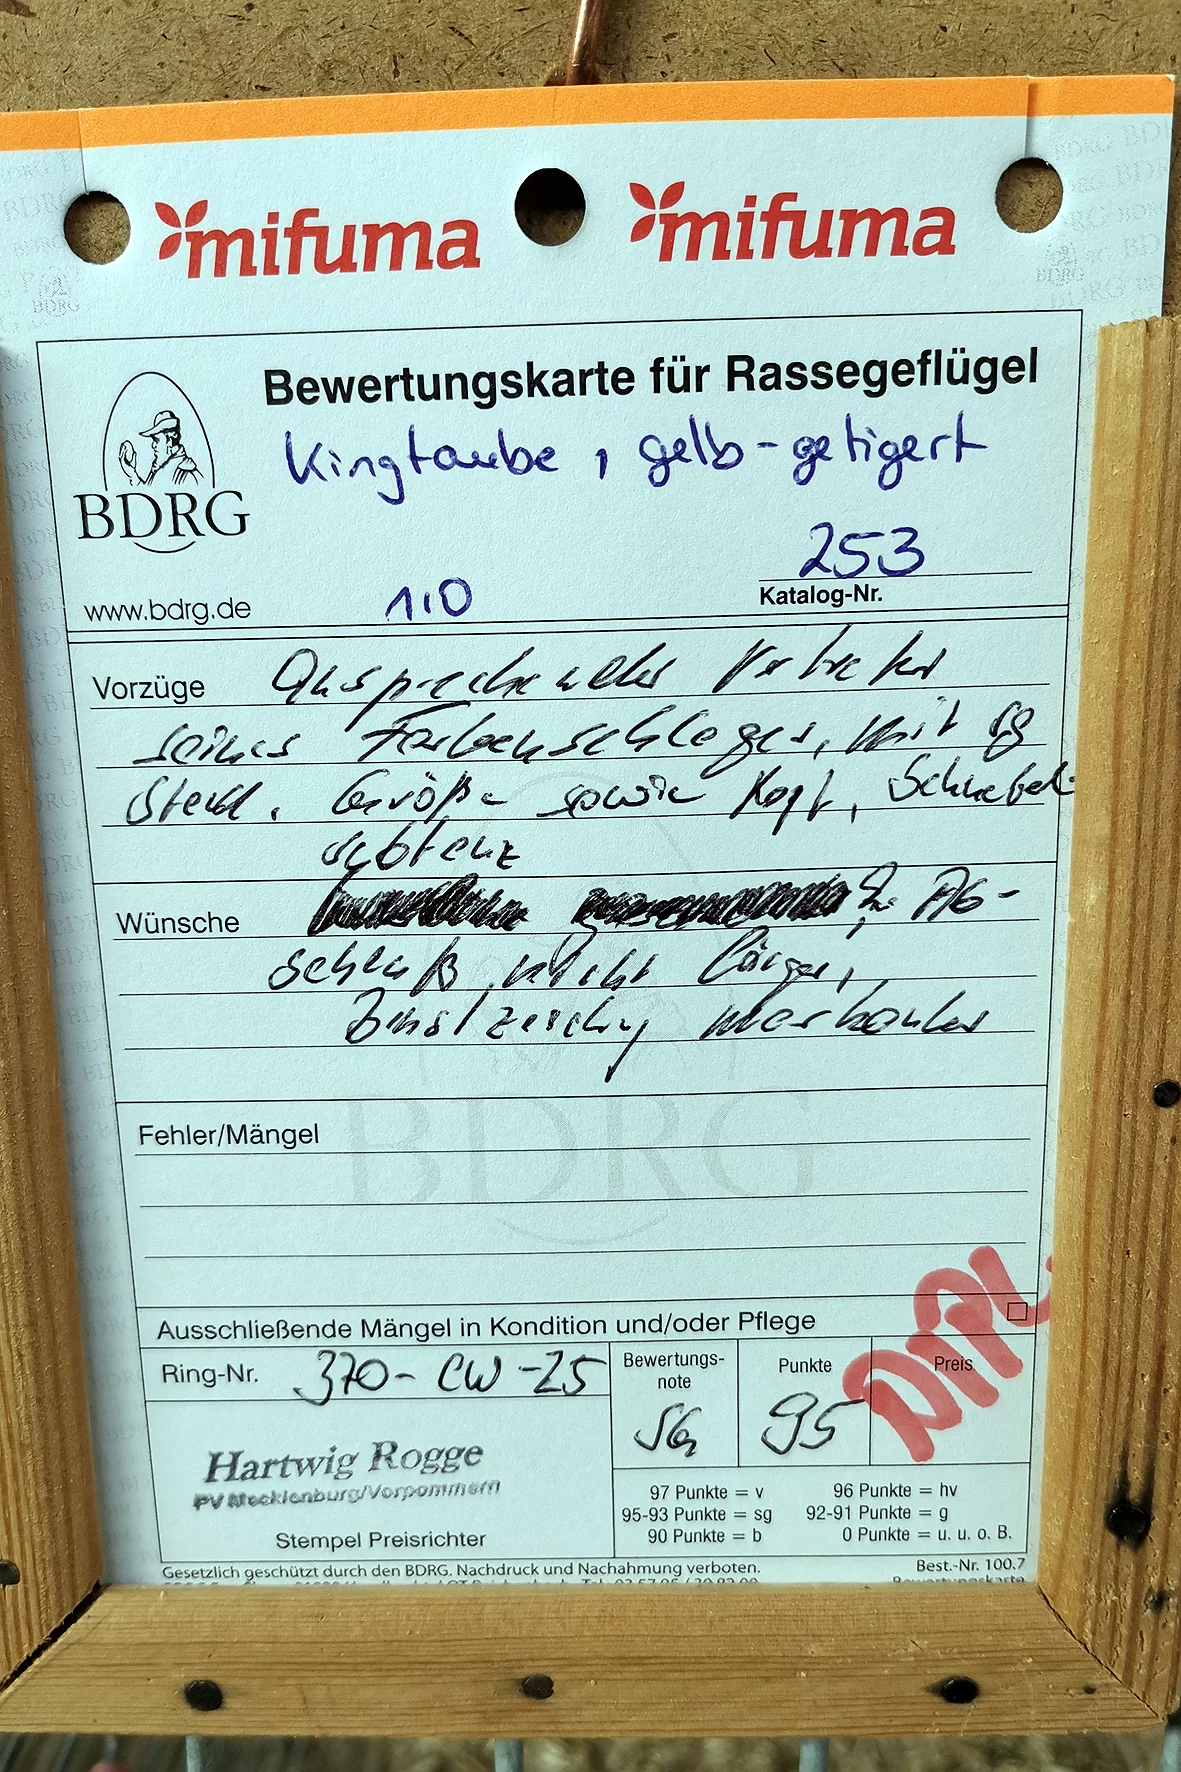 mifuma mifuma
Bewertungskarte für Rassegeflügel
Kingtaube, gelb-getigert
BDRG
253
www.bdrg.de 1,0 Katalog-Nr.
Vorzüge Ansprechender Vertreter
seines Farbenschlages, mit sg
Stand. Größe sowie Kopf, Schnabel-
substanz
Wünsche AG-
schluß nicht länger,
Brustzeichg markanter
BDRG
Fehler/Mängel
Ausschließende Mängel in Kondition und/oder Pflege
Ring-Nr. 370-CW-25
Bewertungs-
note
SG
Punkte
95
Preis
Hartwig Rogge
PV Mecklenburg/Vorpommern
Stempel Preisrichter
97 Punkte = v 96 Punkte = hv
95-93 Punkte = sg 92-91 Punkte = g
90 Punkte = b 0 Punkte = u. u. o. B.
Gesetzlich geschützt durch den BDRG. Nachdruck und Nachahmung verboten. Best.-Nr. 100.7
Bewertungskarte